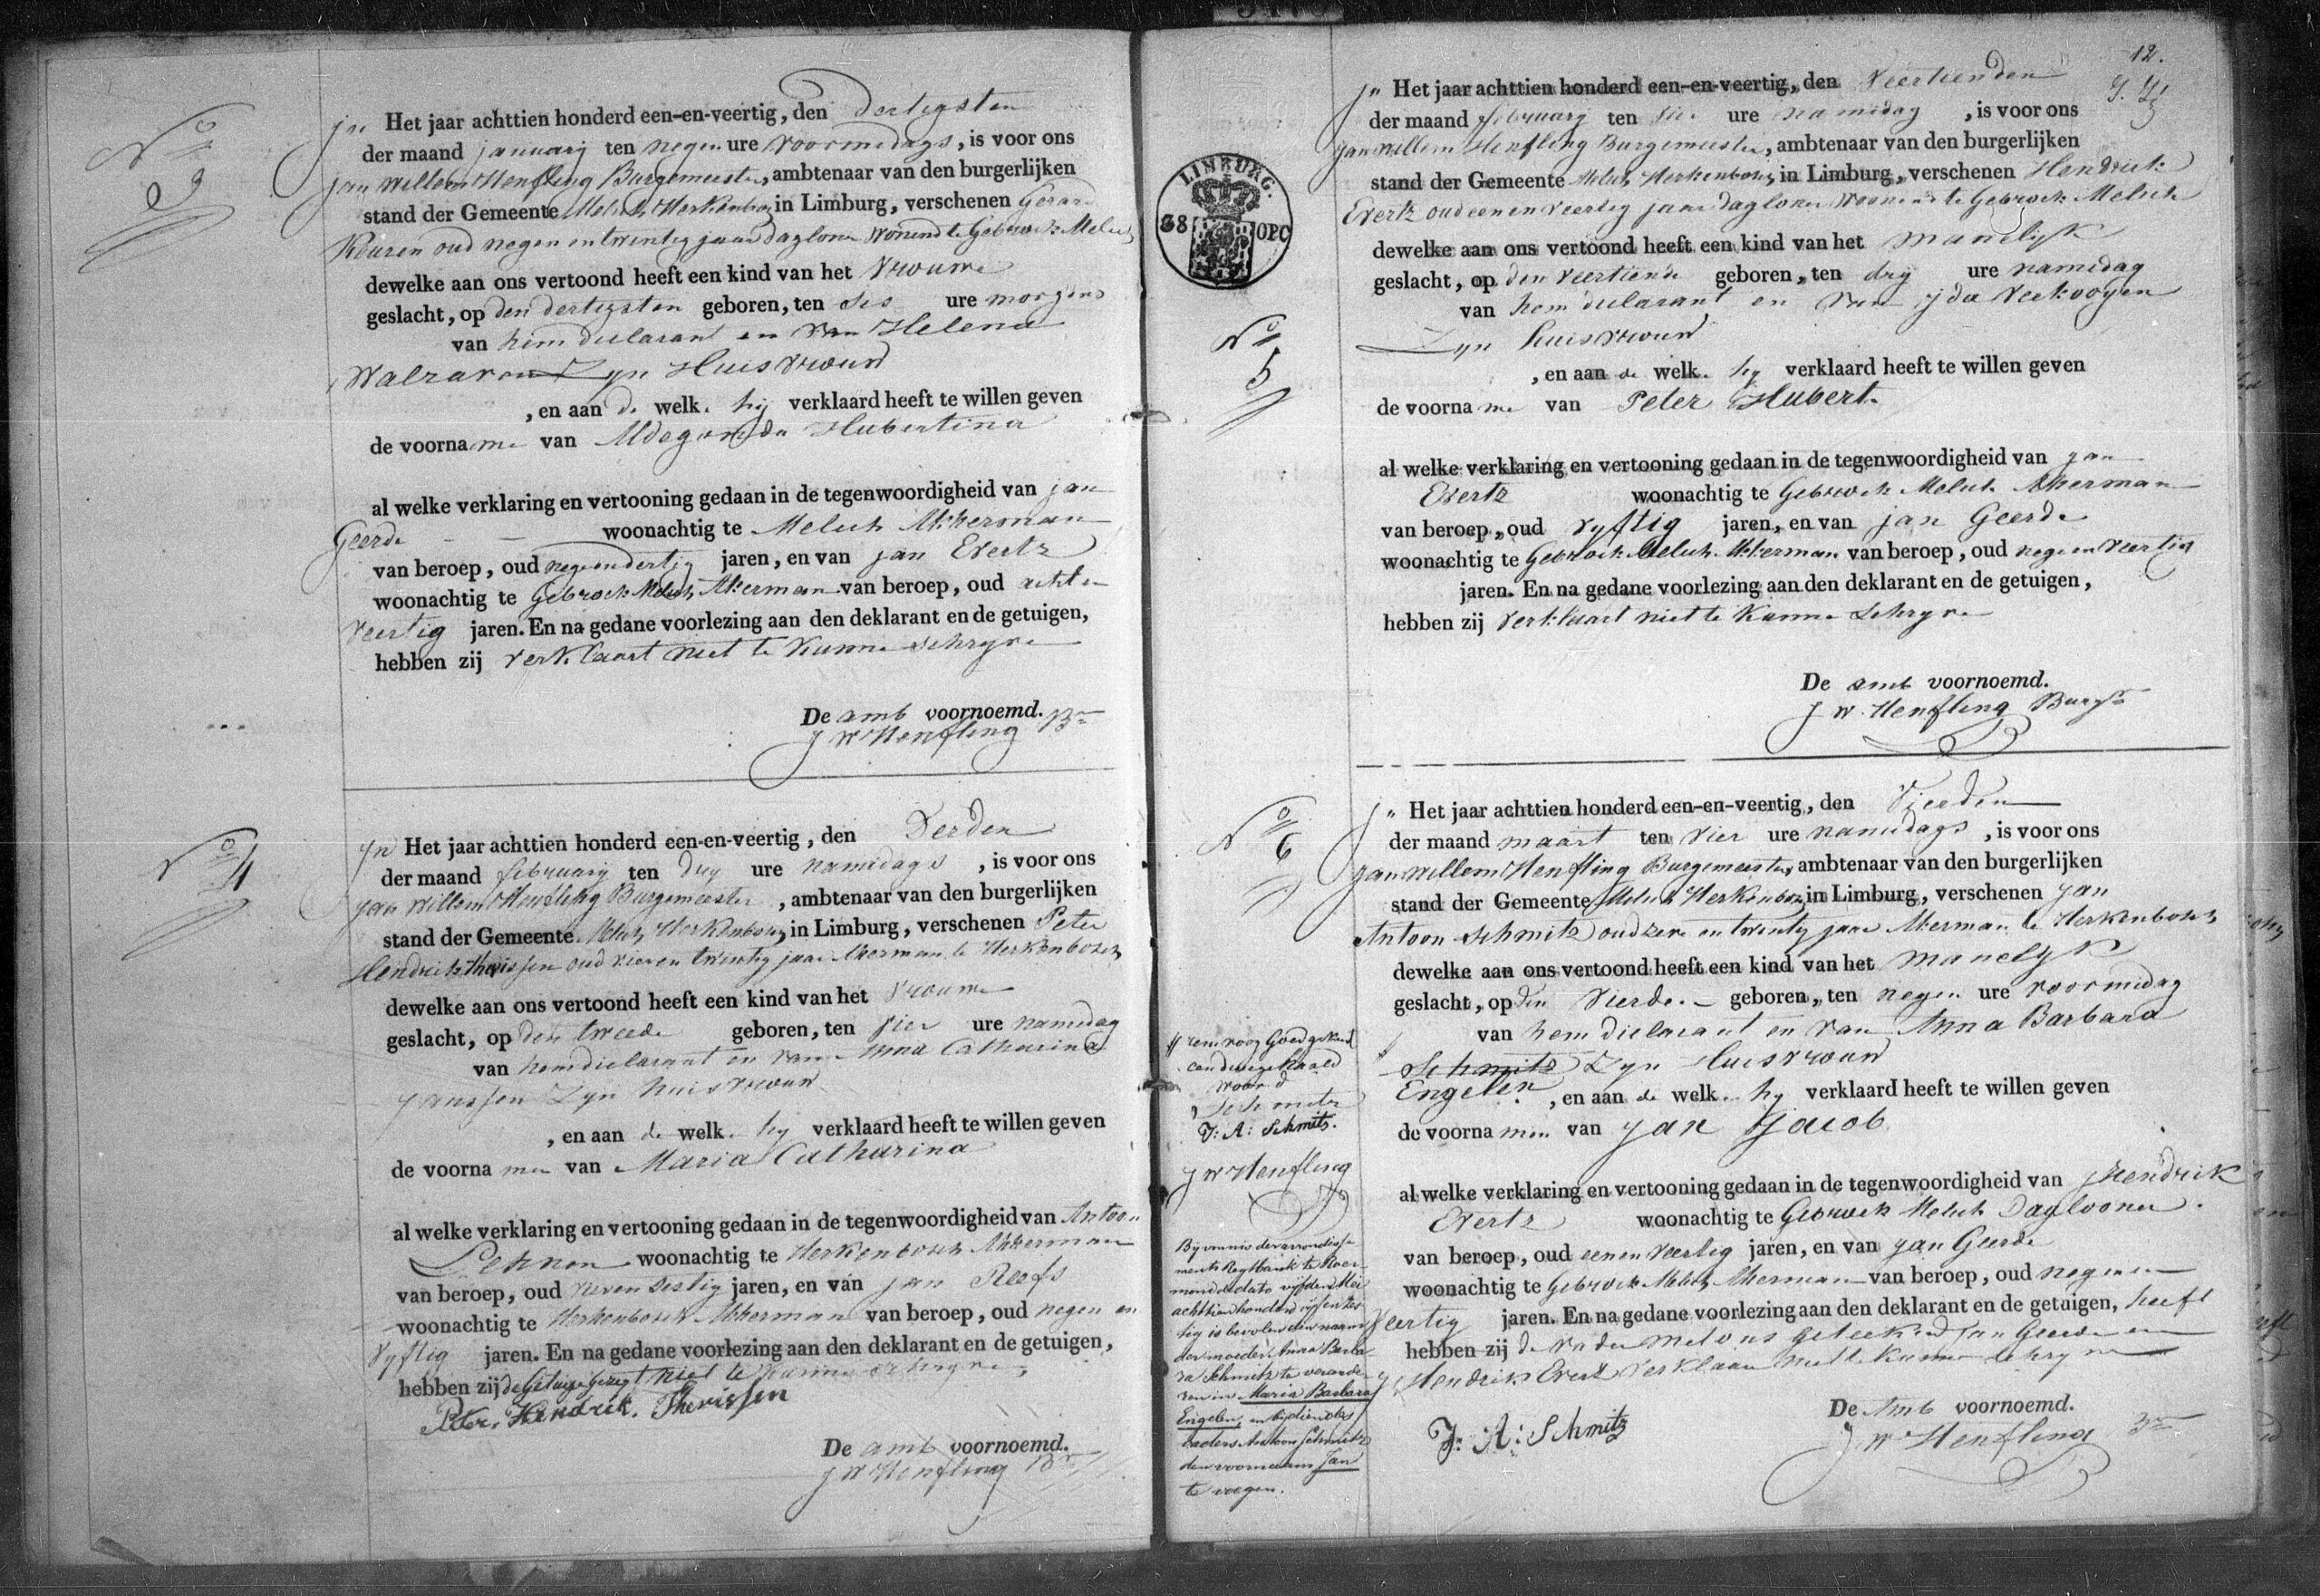 No
3
Jn Het jaar achttien honderd een-en-veertig, den Dertigsten
der maand januarij ten negen ure voormidags, is voor ons
jan willem Henfling Burgemeester, ambtenaar van den burgerlijken
stand der Gemeente Melich Herkenbosch in Limburg, verschenen Gerard
Keuren oud negen en twintig jaar dagloner wonend te Gebroek Melich
dewelke aan ons vertoond heeft een kind van het vrouwe
geslacht, op den dertigsten geboren, ten ses ure morgens
van hem declarant en van Helena
Walraven Zyn Huisvrouw
, en aan de welk. hij verklaard heeft te willen geven
de voorname van Aldegonda Hubertina
al welke verklaring en vertooning gedaan in de tegenwoordigheid van jan
Geerde woonachtig te Melich Akkerman
van beroep, oud negendertig jaren, en van jan Evertz
woonachtig te Gebroek Melich Akerman van beroep, oud acht en
veertig jaren. En na gedane voorlezing aan den deklarant en de getuigen,
hebben zij verklaart niet te kunne schryve
De amb voornoemd.
J W Henfling Br
No
4
Jn Het jaar achttien honderd een-en-veertig, den Derden
der maand februarij ten dry ure namidags, is voor ons
jan willem Henfling Burgemeester, ambtenaar van den burgerlijken
stand der Gemeente Melich Herkenbosch in Limburg, verschenen Peter
Hendrik Thevissen oud vier en twintig jaar Akerman te Herkenbosch
dewelke aan ons vertoond heeft een kind van het vrouwe
geslacht, op den tweede geboren, ten vier ure namidag
van hem declarant en van Anna Catharina
Janssen Zyn huisvrouw
, en aan de welk. hy verklaard heeft te willen geven
de voorname van Maria Catharina
al welke verklaring en vertooning gedaan in de tegenwoordigheid van Antoon
woonachtig te Herkenbosch Akkerman
van beroep, oud seven sestig jaren, en van jan Reefs
woonachtig te Herkenbosch Akkerman van beroep, oud negen en
vyftig jaren. En na gedane voorlezing aan den deklarant en de getuigen,
hebben zij de getuige gezegt niet te kunne schryve
Peter Hendrik Thevissen
De amb voornoemd.
J W Henfling Br
12.
LIMBURG.
38 OPC
No
5
Jn Het jaar achttien honderd een-en-veertig, den Veertienden
der maand februarij ten ure namidag, is voor ons
jan willem Henfling Burgemeester, ambtenaar van den burgerlijken
stand der Gemeente Melich Herkenbosch in Limburg, verschenen Hendrik
Evertz oud een en veertig jaar dagloner woonend te Gebroek Melich
dewelke aan ons vertoond heeft een kind van het manelyk
geslacht, op den veertiende geboren, ten dry ure namidag
van hem declarant en van jda Veekooyen
Zyn huisvrouw
, en aan de welk. hy verklaard heeft te willen geven
de voorname van Peter Hubert.
al welke verklaring en vertooning gedaan in de tegenwoordigheid van jan
Evertz woonachtig te Gebroek Melich Akerman
van beroep, oud vyftig jaren, en van jan Geerde
woonachtig te Gebroek Melich Akkerman van beroep, oud negen veertig
jaren. En na gedane voorlezing aan den deklarant en de getuigen,
hebben zij verklaart niet te kunne schryve
De amb voornoemd.
J W Henfling Burgr
No
6
Jn Het jaar achttien honderd een-en-veertig, den Vierden
der maand maart ten vier ure namidags, is voor ons
jan willem Henfling Burgemeester, ambtenaar van den burgerlijken
stand der Gemeente Melich Herkenbosch in Limburg, verschenen Jan
Antoon Schmitz oud zeve en twintig jaar Akerman te Herkenbosch
dewelke aan ons vertoond heeft een kind van het manelyk
geslacht, op den Vierde. geboren, ten negen ure voormidag
van hem declarant en van Anna Barbara
Schmitz Zyn Huisvrouw
Engelen, en aan de welk. hy verklaard heeft te willen geven
de voornamen van Jan Jacob
al welke verklaring en vertooning gedaan in de tegenwoordigheid van Hendrik
Evertz woonachtig te Gebroek Melich Daglooner.
van beroep, oud een en veertig jaren, en van jan Geerde
woonachtig te Gebroek Melich Akerman van beroep, oud negen en
Veertig jaren. En na gedane voorlezing aan den deklarant en de getuigen, heeft
hebben zij de vader met ons geteekend jan Geerde en
Hendrik Evertz verklaaren niet te kunne schryve
De Amb voornoemd.
J: A: Schmitz
J W Henfling Br
renvooy Goedgekend
en duergehaald
woord
Schmitz
J: A: Schmitz.
J W Henfling
Bij vonnis der arrondisse
ments Regtbank te Roer-
mond de dato vijfden Mei
achttienhonderd vijf en zes
tig is bevolen den naam
der moeder Anna Barba
ra Schmitz te verande
ren in Maria Barbara
Engelen, en bij dien des
vaders Antoon Schmitz
den voornaam Jan
te voegen.